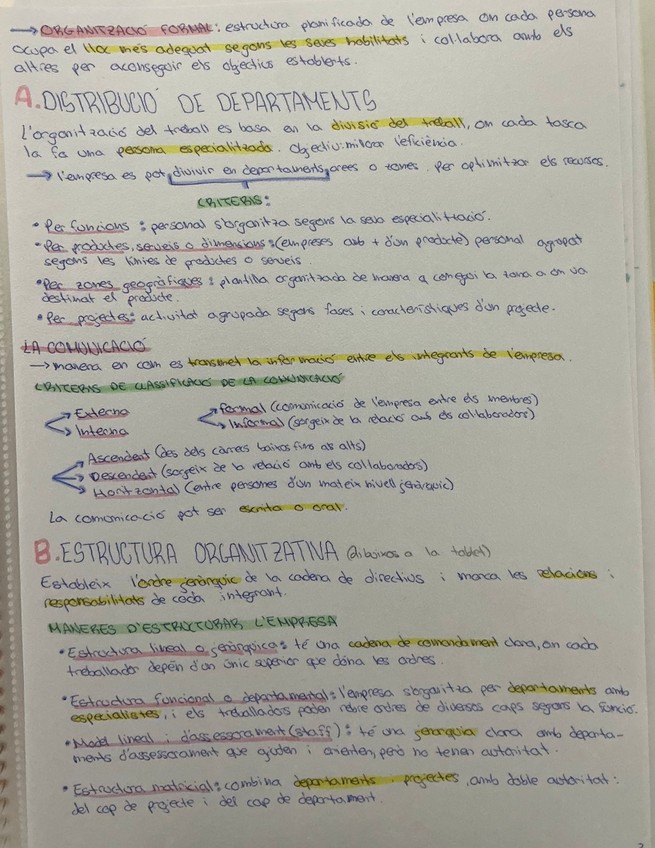 → ORGANITZACIÓ FORMAL: estructura planificada de l'empresa on cada persona
ocupa el lloc més adequat segons les seves habilitats i col·labora amb els
altres per aconseguir els objectius establerts.
A. DISTRIBUCIÓ DE DEPARTAMENTS
L'organització del treball es basa en la divisió del treball, on cada tasca
la fa una persona especialitzada. Objectiu: millorar l'eficiència.
→ l'empresa es pot divivir en departaments, àrees o zones. Per optimitzar els recursos.
CRITERIS:
• Per funcions: personal s'organitza segons la seva especialització.
• Per productes, serveis o dimensions: (empreses amb + d'un producte) personal agrupat
segons les línies de productes o serveis.
• Per zones geogràfiques: plantilla organitzada de manera q consegui la zona a on va
destinat el producte.
• Per projectes: activitat agrupada segons fases i característiques d'un projecte.
LA COMUNICACIÓ
→ manera en com es transmet la informació entre els integrants de l'empresa.
CRITERIS DE CLASSIFICACIÓ DE LA COMUNICACIÓ
Externa
Interna
Formal (comunicació de l'empresa entre els membres)
Informal (sorgeix de la relació amb els col·laboradors)
Ascendent (des dels càrrecs baixos fins as alts)
Descendent (sorgeix de la relació amb els col·laboradors)
Horitzontal (entre persones d'un mateix nivell jeràrquic)
La comunicació pot ser escrita o oral.
B. ESTRUCTURA ORGANITZATIVA (dibuixos a la tablet)
Estableix l'ordre jeràrquic de la cadena de directius i marca les relacions i
responsabilitats de cada integrant.
MANERES D'ESTRUCTURAR L'EMPRESA
• Estructura lineal o jeràrquica: té una cadena de comandament clara, on cada
treballador depèn d'un únic superior que dóna les ordres.
• Estructura funcional o departamental: l'empresa s'organitza per departaments amb
especialistes, i els treballadors poden rebre ordres de diversos caps segons la funció.
• Model lineal i d'assessorament (staff): té una jerarquia clara amb departa-
ments d'assessorament que ajuden i orienten, però no tenen autoritat.
• Estructura matricial: combina departaments i projectes, amb doble autoritat:
del cap de projecte i del cap de departament.